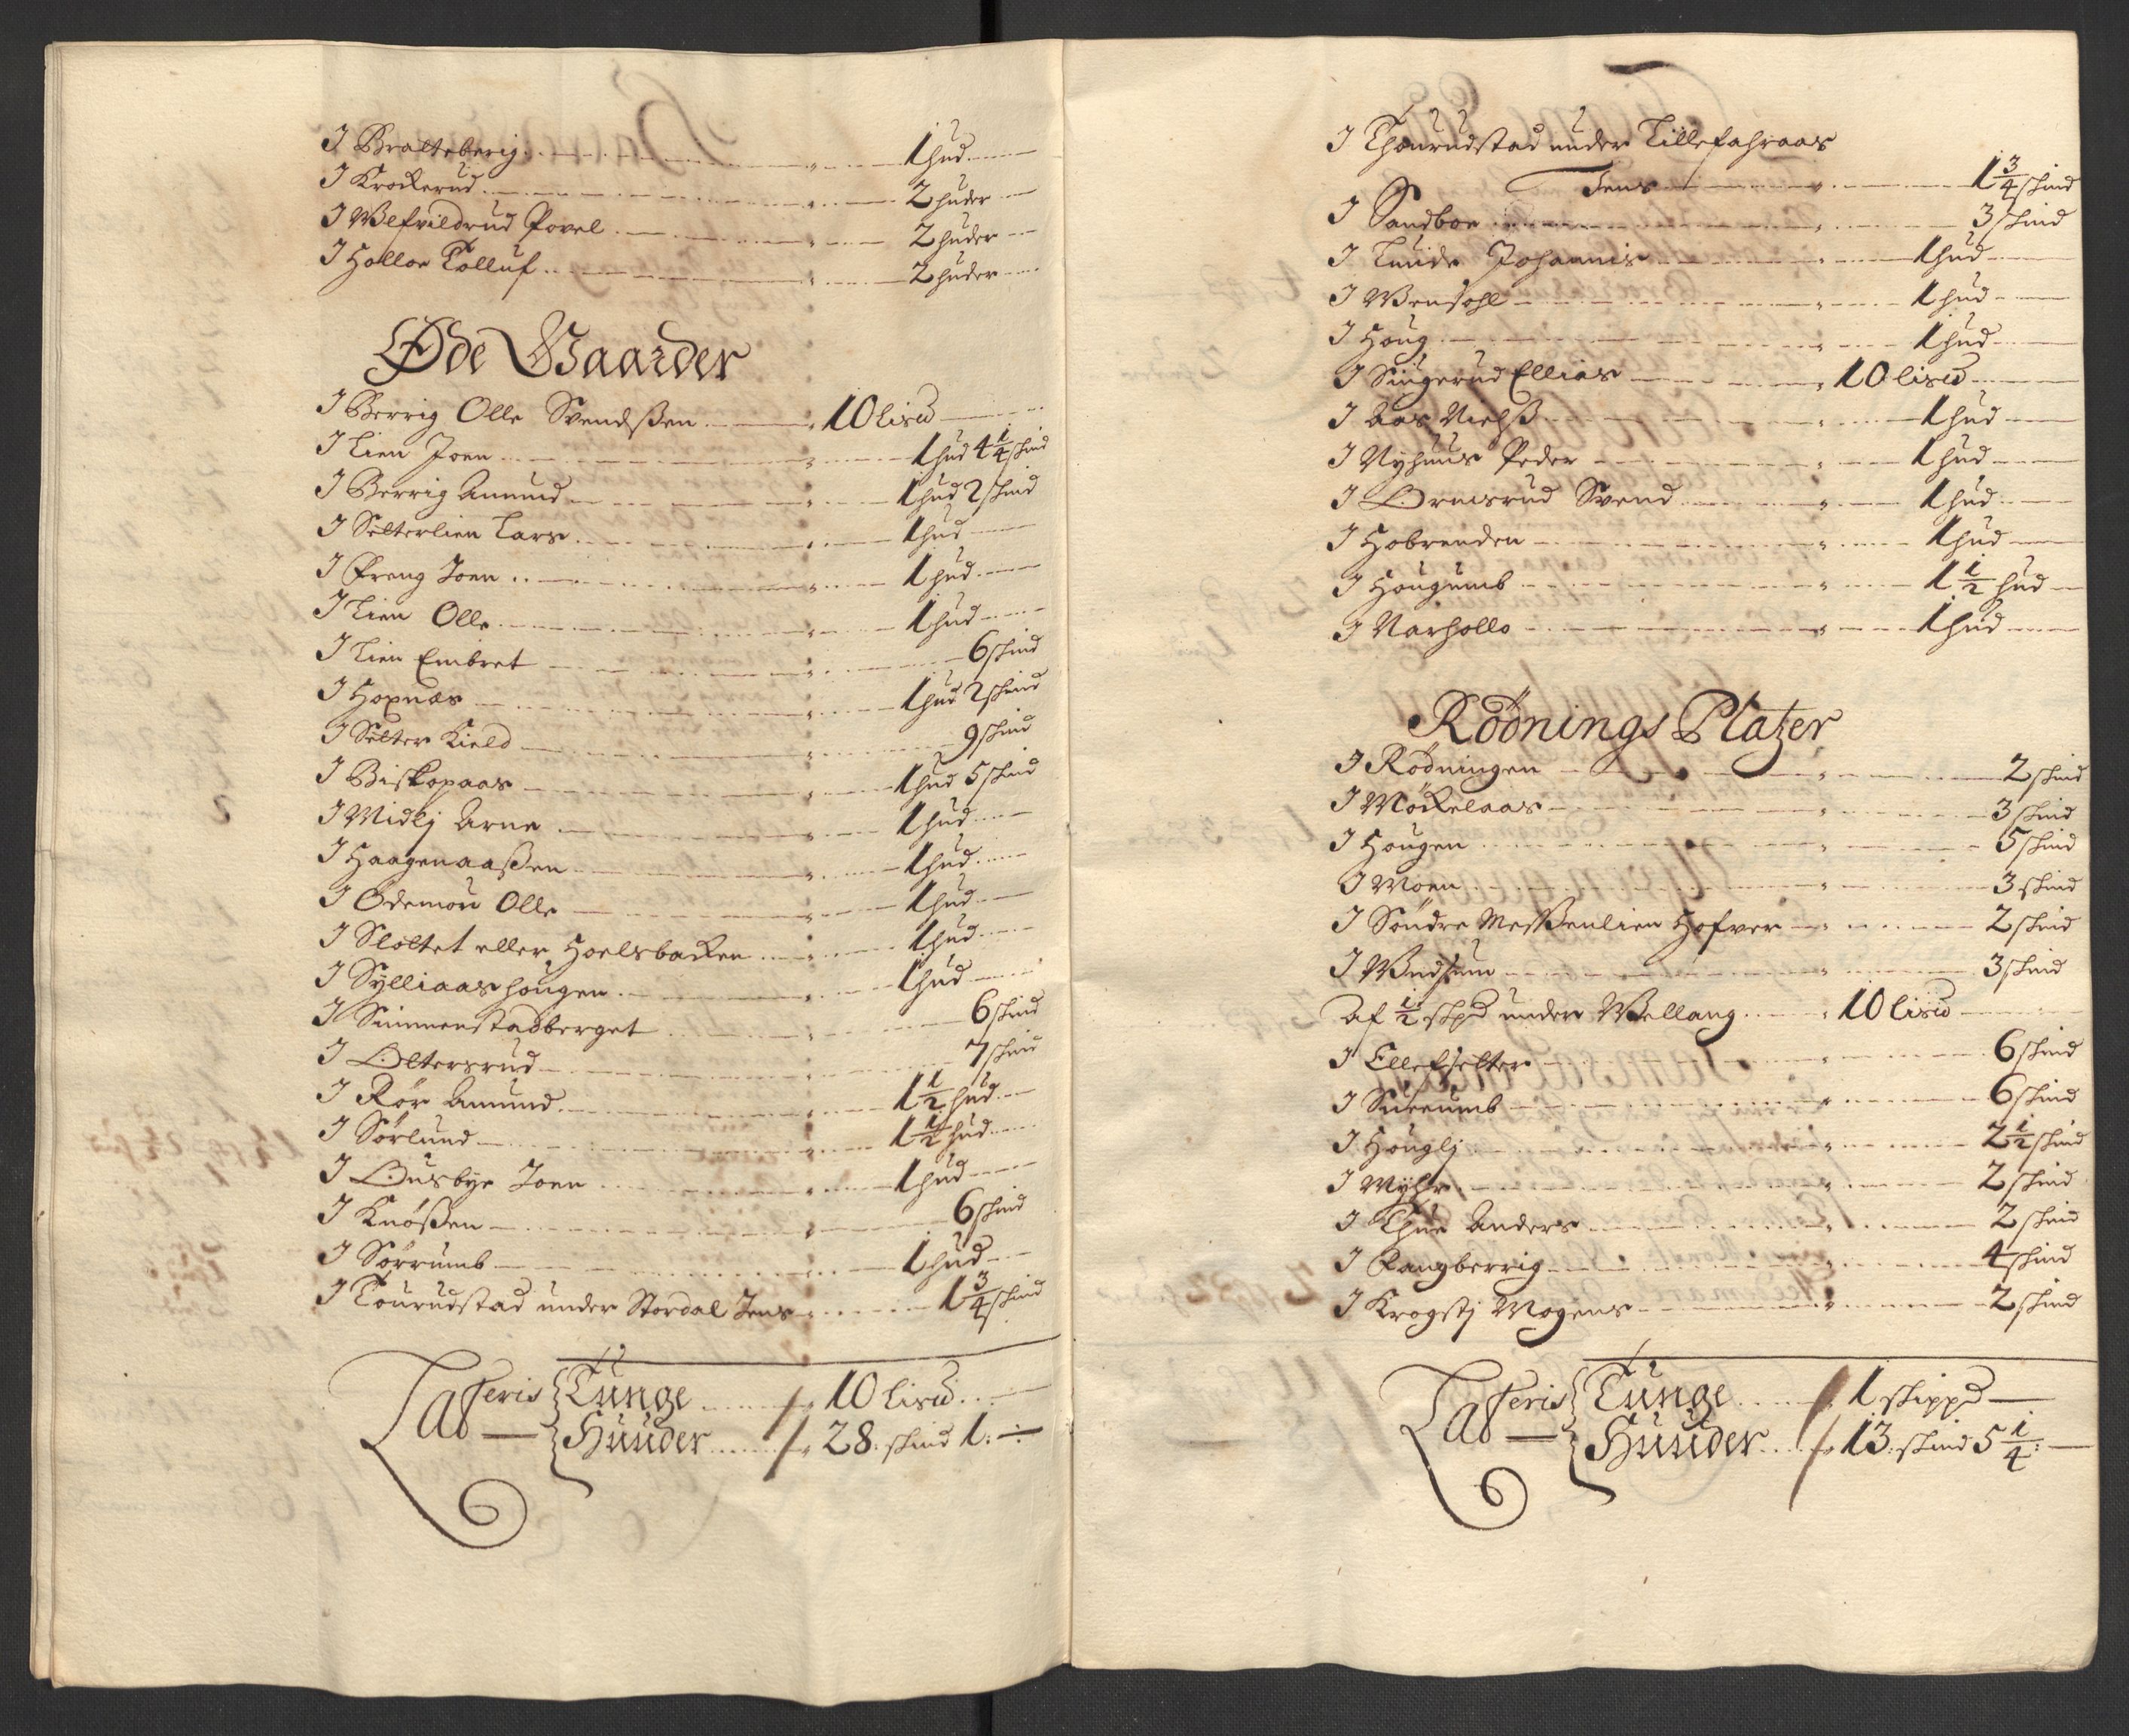 J Bratteberig 1 hud
J Krockerud 2 huder
J Ulfvildrud Povel 2 huder
J Holloe Tolluf 2 huder
Øde Gaarder
J Berrig Olle Svendßen 10 lis℔
J Lien Joen 1 hud 4 1/4 skind
J Berrig Amund 1 hud 2 skind
J Selterlien Lars 1 hud
J Preng Joen 1 hud
J Lien Olle 1 hud
J Lien Embret 6 skind
J Hoxnæs 1 hud 2 skind
J Selter Kield 9 skind
J Biskopaas 1 hud 5 skind
J Midlj Arne 1 hud
J Haagenaaßen 1 hud
J Ødemou Olle 1 hud
J Slottet eller Hoelsbacken 1 hud
J Sylliaashougen 1 hud
J Simmenstadberget 6 skind
J Oltersrud 7 skind
J Rør Amund 1 1/2 hud
J Sørlund 1 1/2 hud
J Ousbye Joen 1 hud
J Knøßen 6 skind
J Sørrumb 1 hud
J Tourudstad under Stordal Jens 1 3/4 skind
Lateris Tunge 10 lis℔
Huuder 28: skind 1:
J Thourudstad under Lillefahraas
Jens 1 3/4 skind
J Sandboe 3 skind
J Lunde Johannis 1 hud
J Wensohl 1 hud
J Houg 1 hud
J Singerud Ellias 10 lis℔
J Aas Nielß 1 hud
J Nyhuus Peder 1 hud
J Ormsrud Svend 1 hud
J Hobrenden 1 hud
J Hougumb 1 1/2 hud
J Narhollo 1 hud
Rödnings Platzer
J Rødningen 2 skind
J Møckelaas 3 skind
J Hougen 5 skind
J Moen 3 skind
J Søndre Meßenlien Hofver 2 skind
J Wudsum 3 skind
Af 1/2 skp℔ under Wellang 10 lis℔
J Ellefselter 6 skind
J Surumb 6 skind
J Houglj 2 1/2 skind
J Myhr 2 skind
J Thue Anders 2 skind
J Langberrig 4 skind
J Krogstj Mogens 2 skind
Lateris Tunge 1 skipp℔
Huuder 13: skind 5 1/4: